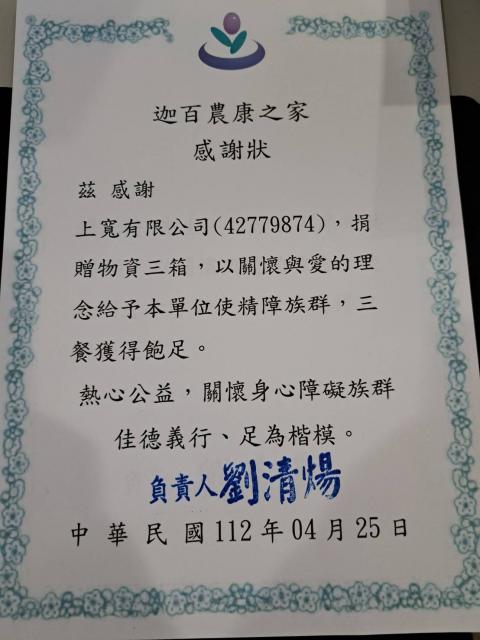 迦百農康之家
感謝狀
茲 感謝
上寬有限公司(42779874)，捐
贈物資三箱，以關懷與愛的理
念給予本單位使精障族群，三
餐獲得飽足。
熱心公益，關懷身心障礙族群
佳德義行、足為楷模。
負責人劉清煬
中 華 民 國 112 年 04 月 25 日